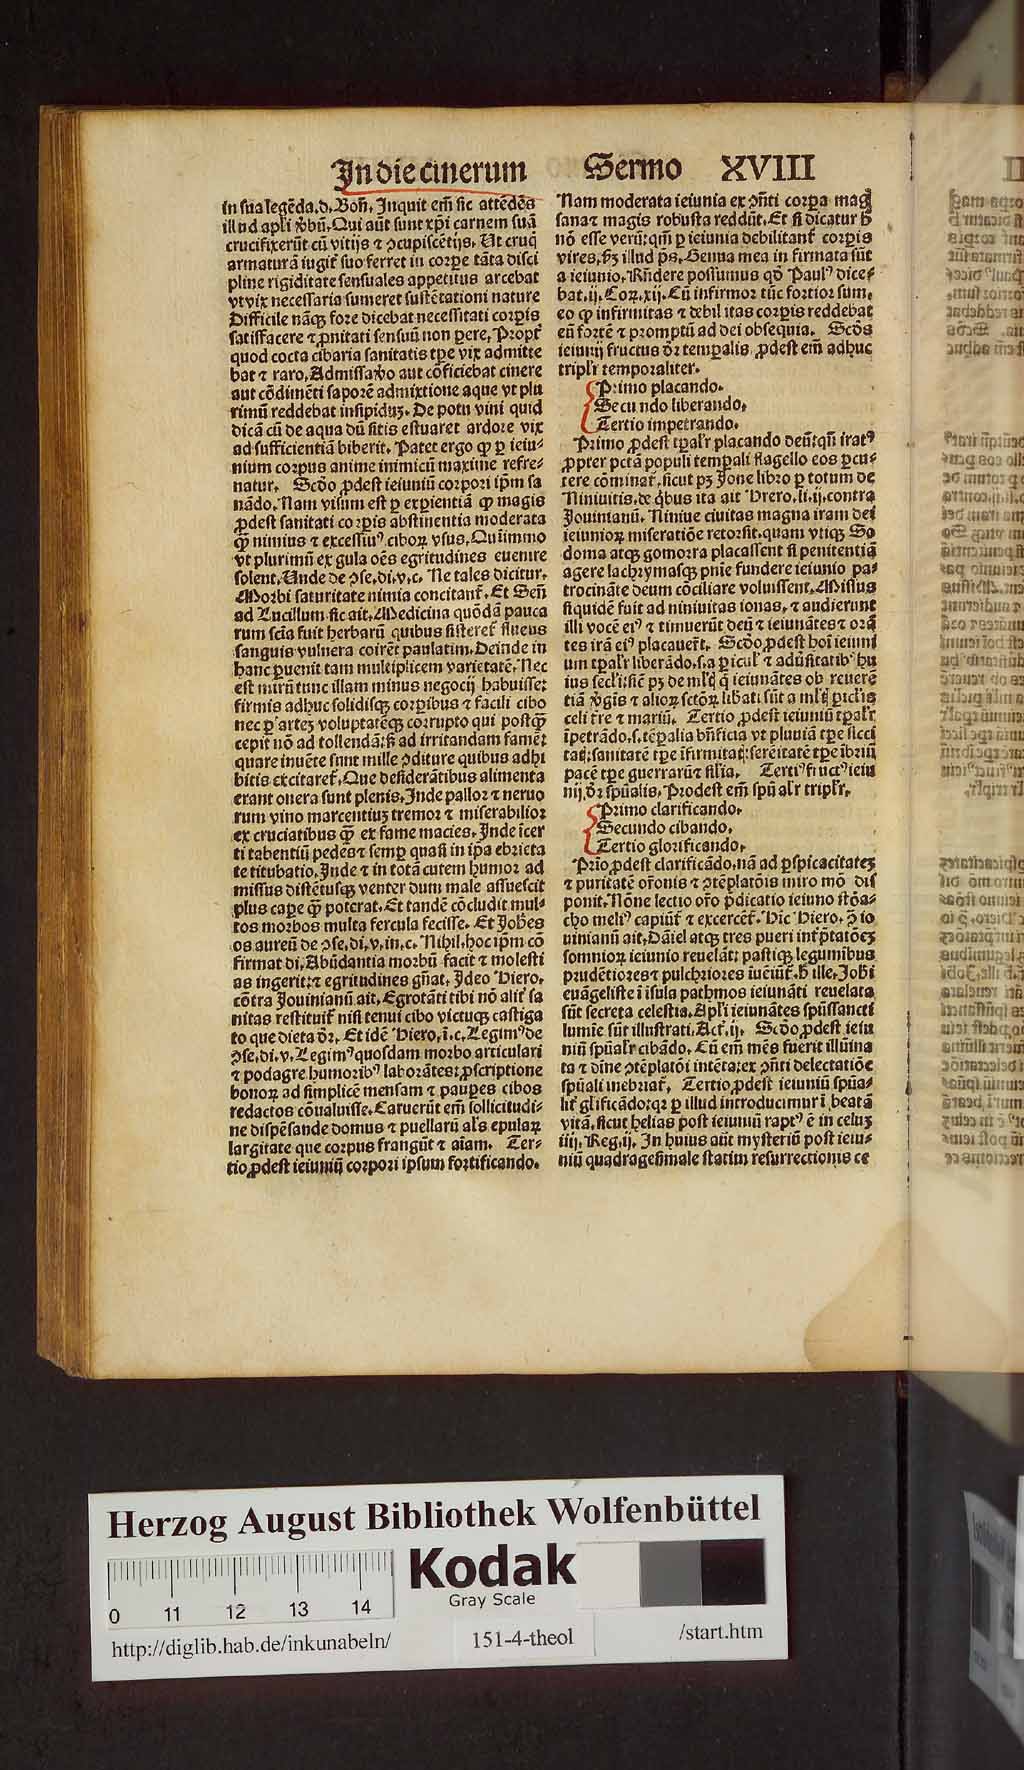 In die cinerum Sermo XVIII
in sua legēda.d.Boñ. Inquit em̄ sic attēdēs
illud apl'i v̓bū. Qui aūt sunt xp̄i carnem suā
crucifixerūt cū vitijs ⁊ ꝯcupiscētijs. Ut cruꝗ
armaturā iugit̓ suo ferret in corꝑe tāta disci
pline rigiditate sensuales appetitus arcebat
vt vix necessaria sumeret sustētationi nature
Difficile nāqꝫ fore dicebat necessitati corꝑis
satisfacere ⁊ ꝓnitati sensuū non ꝑere. Propt̓
quod cocta cibaria sanitatis tꝑe vix admitte
bat ⁊ raro. Admissa v̓o aut cōficiebat cinere
aut cōdimēti saporē admixtione aque vt plu
rimū reddebat insipiduꝫ. De potu vini quid
dicā cū de aqua dū sitis estuaret ardore vix
ad sufficientiā biberit. Patet ergo ꝙ ꝑ ieiu-
nium corpus anime inimicū maxime refre-
natur. Scd̓o ꝓdest ieiuniū corpori ip̄m sa
nādo. Nam visum est ꝑ exꝑientiā ꝙ magis
ꝓdest sanitati corꝑis abstinentia moderata
ꝙ̄ nimius ⁊ excessiuꝰ ciboꝝ vsus. Quīimmo
vt plurimū ex gula oēs egritudines euenire
solent. Unde de ꝯse.di.v.c. Ne tales dicitur.
Morbi saturitate nimia concitant̓. Et Señ
ad Lucillum sic ait. Medicina quōdā pauca
rum scīa fuit herbarū quibus sisteret̓ fluens
sanguis vulnera coirēt paulatim. Deinde in
hanc ꝑuenit tam multiplicem varietatē. Nec
est mirū tunc illam minus negocij habuisse:
firmis adhuc solidisqꝫ corꝑibus ⁊ facili cibo
nec ꝑ arteꝫ voluptatēqꝫ corrupto qui postꝙ̄
cepit nō ad tollendā: sꝫ ad irritandam famē:
quare inuēte sunt mille ꝯditure quibus adhi
bitis excitaret̓. Que desiderātibus alimenta
erant onera sunt plenis. Inde pallor ⁊ neruo
rum vino marcentiuꝫ tremor ⁊ miserabilior
ex cruciatibus ꝙ̄ ex fame macies. Inde īcer
ti tabentiū pedes ⁊ semꝑ quasi in ip̄a ebrieta
te titubatio. Inde ⁊ in totā cutem humor ad
missus distētusqꝫ venter dum male assuescit
plus caꝑe ꝙ̄ poterat. Et tandē cōcludit mul-
tos morbos multa fercula fecisse. Et Joh̄es
os aureū de ꝯse.di.v.in.c. Nihil.hoc ip̄m cō
firmat di. Abūdantia morbū facit ⁊ molesti
as ingerit: ⁊ egritudines gn̄at. Ideo Hiero.
cōtra Jouinianū ait. Egrotāti tibi nō alit̓ sa
nitas restituit̓ nisi tenui cibo victuqꝫ castiga
to que dieta d̓r. Et idē Hiero.ī.c. Legimꝰ de
ꝯse.di.v. Legimꝰ quosdam morbo articulari
⁊ podagre humoribꝰ laborātes: ꝓscriptione
bonoꝝ ad simplicē mensam ⁊ pauꝑes cibos
redactos cōualuisse. Caruerūt em̄ sollicitudi-
ne dispēsande domus ⁊ puellarū als̓ epulaꝝ
largitate que corpus frangūt ⁊ aīam. Ter-
tio ꝓdest ieiuniū corpori ipsum fortificando.
Nam moderata ieiunia ex ꝯn̄ti corꝑa magꝭ
sana ⁊ magis robusta reddūt. Et si dicatur h̓
nō esse verū: qm̄ ꝑ ieiunia debilitant̓ corꝑis
vires, sꝫ illud p̄s. Genua mea in firmata sūt
a ieiunio. Rn̄dere possumus qd̓ Paulꝰ dice-
bat.ij.Coꝝ.xij. Cū infirmor tūc fortior sum.
eo ꝙ infirmitas ⁊ debilitas corꝑis reddebat
eū fortē ⁊ promptū ad dei obsequia. Scd̓s
ieiunij fructus d̓r temꝑalis ꝓdest em̄ adhuc
tripl'r temporaliter.
Primo placando.
Secundo liberando.
Tertio impetrando.
Primo ꝓdest tꝑal'r placando deū: qn̄ iratꝰ
ꝓpter pctā populi temꝑali flagello eos ꝑcu-
tere cōminat̓, sicut pꝫ Jone libro ꝑ totum de
Niniuitis. de qͥbus ita ait Hiero.li.ij.contra
Jouinianū. Niniue ciuitas magna iram dei
ieiunioꝝ miseratiōe retorsit. quam vtiqꝫ So
doma atqꝫ gomorra placassent si penitentiā
agere lachrymasqꝫ pnīe fundere ieiunio pa-
trocināte deum cōciliare voluissent. Missus
siquidē fuit ad niniuitas ionas, ⁊ audierunt
illi vocē eiꝰ ⁊ timuerūt deū ⁊ ieiunātes ⁊ orā
tes irā eiꝰ placauer̄t. Scd̓o ꝓdest hoī ieiuni
um tꝑal'r liberādo.s.a ꝑicul' ⁊ adūsitatibꝰ hu
ius secl'i: sic̄ pꝫ de ml'tꝭ q̄ ieiunātes ob reuerē
tiā v̓gīs ⁊ alioꝝ sctōꝝ libati sūt a ml'tꝭ ꝑicl'is
celi tr̄re ⁊ mariū. Tertio ꝓdest ieiuniū tꝑal'r
īpetrādo.s.tēꝑalia bn̄ficia vt pluuiā tꝑe sicci
tatꝭ: sanitatē tꝑe īfirmitatꝭ: serēitatē tꝑe ībriū
pacē tꝑe guerrarū ⁊ sil'ia. Tertiꝰ fructꝰ ieiu
nij d̓r spūalis. Prodest em̄ spūal'r tripl'r.
Primo clarificando.
Secundo cibando.
Tertio glorificando.
Prīo ꝓdest clarificādo. nā ad ꝑspicacitateꝫ
⁊ puritatē or̄onis ⁊ ꝯtēplatōis miro mō dis
ponit. Nōne lectio or̄o p̄dicatio ieiuno stōa-
cho meliꝰ capiūt̓ ⁊ excercēt̓. Hic Hiero. ꝯ̄ io
uinianū ait. Dāiel atqꝫ tres pueri int̓p̄tatōeꝫ
somnioꝝ ieiunio reuelāt: pastiqꝫ legumibus
prudētiores ⁊ pulchriores iuēiūt̓. h̓ ille. Joh̄i
euāgeliste ī īsula pathmos ieiunāti reuelata
sūt secreta celestia. Apl'i ieiunātes spūssancti
lumīe sūt illustrati. Act̓.ij. Scd̓o ꝓdest ieiu
niū spūal'r cibādo. Cū em̄ mēs fuerit illūina
ta ⁊ dīne ꝯtēplatōi intēta: ex ꝯn̄ti delectatiōe
spūali inebriat̓. Tertio ꝓdest ieiuniū spūa-
lit̓ gl'ificādo: qꝛ ꝑ illud introducimur ī beatā
vitā, sicut helias post ieiuniū raptꝰ ē in celuꝫ
iiij.Reg.ij. In huius aūt mysteriū post ieiu-
niū quadragesimale statim resurrectionis ce
Herzog August Bibliothek Wolfenbüttel
Kodak
Gray Scale
0 11 12 13 14
http://diglib.hab.de/inkunabeln/ 151-4-theol /start.htm